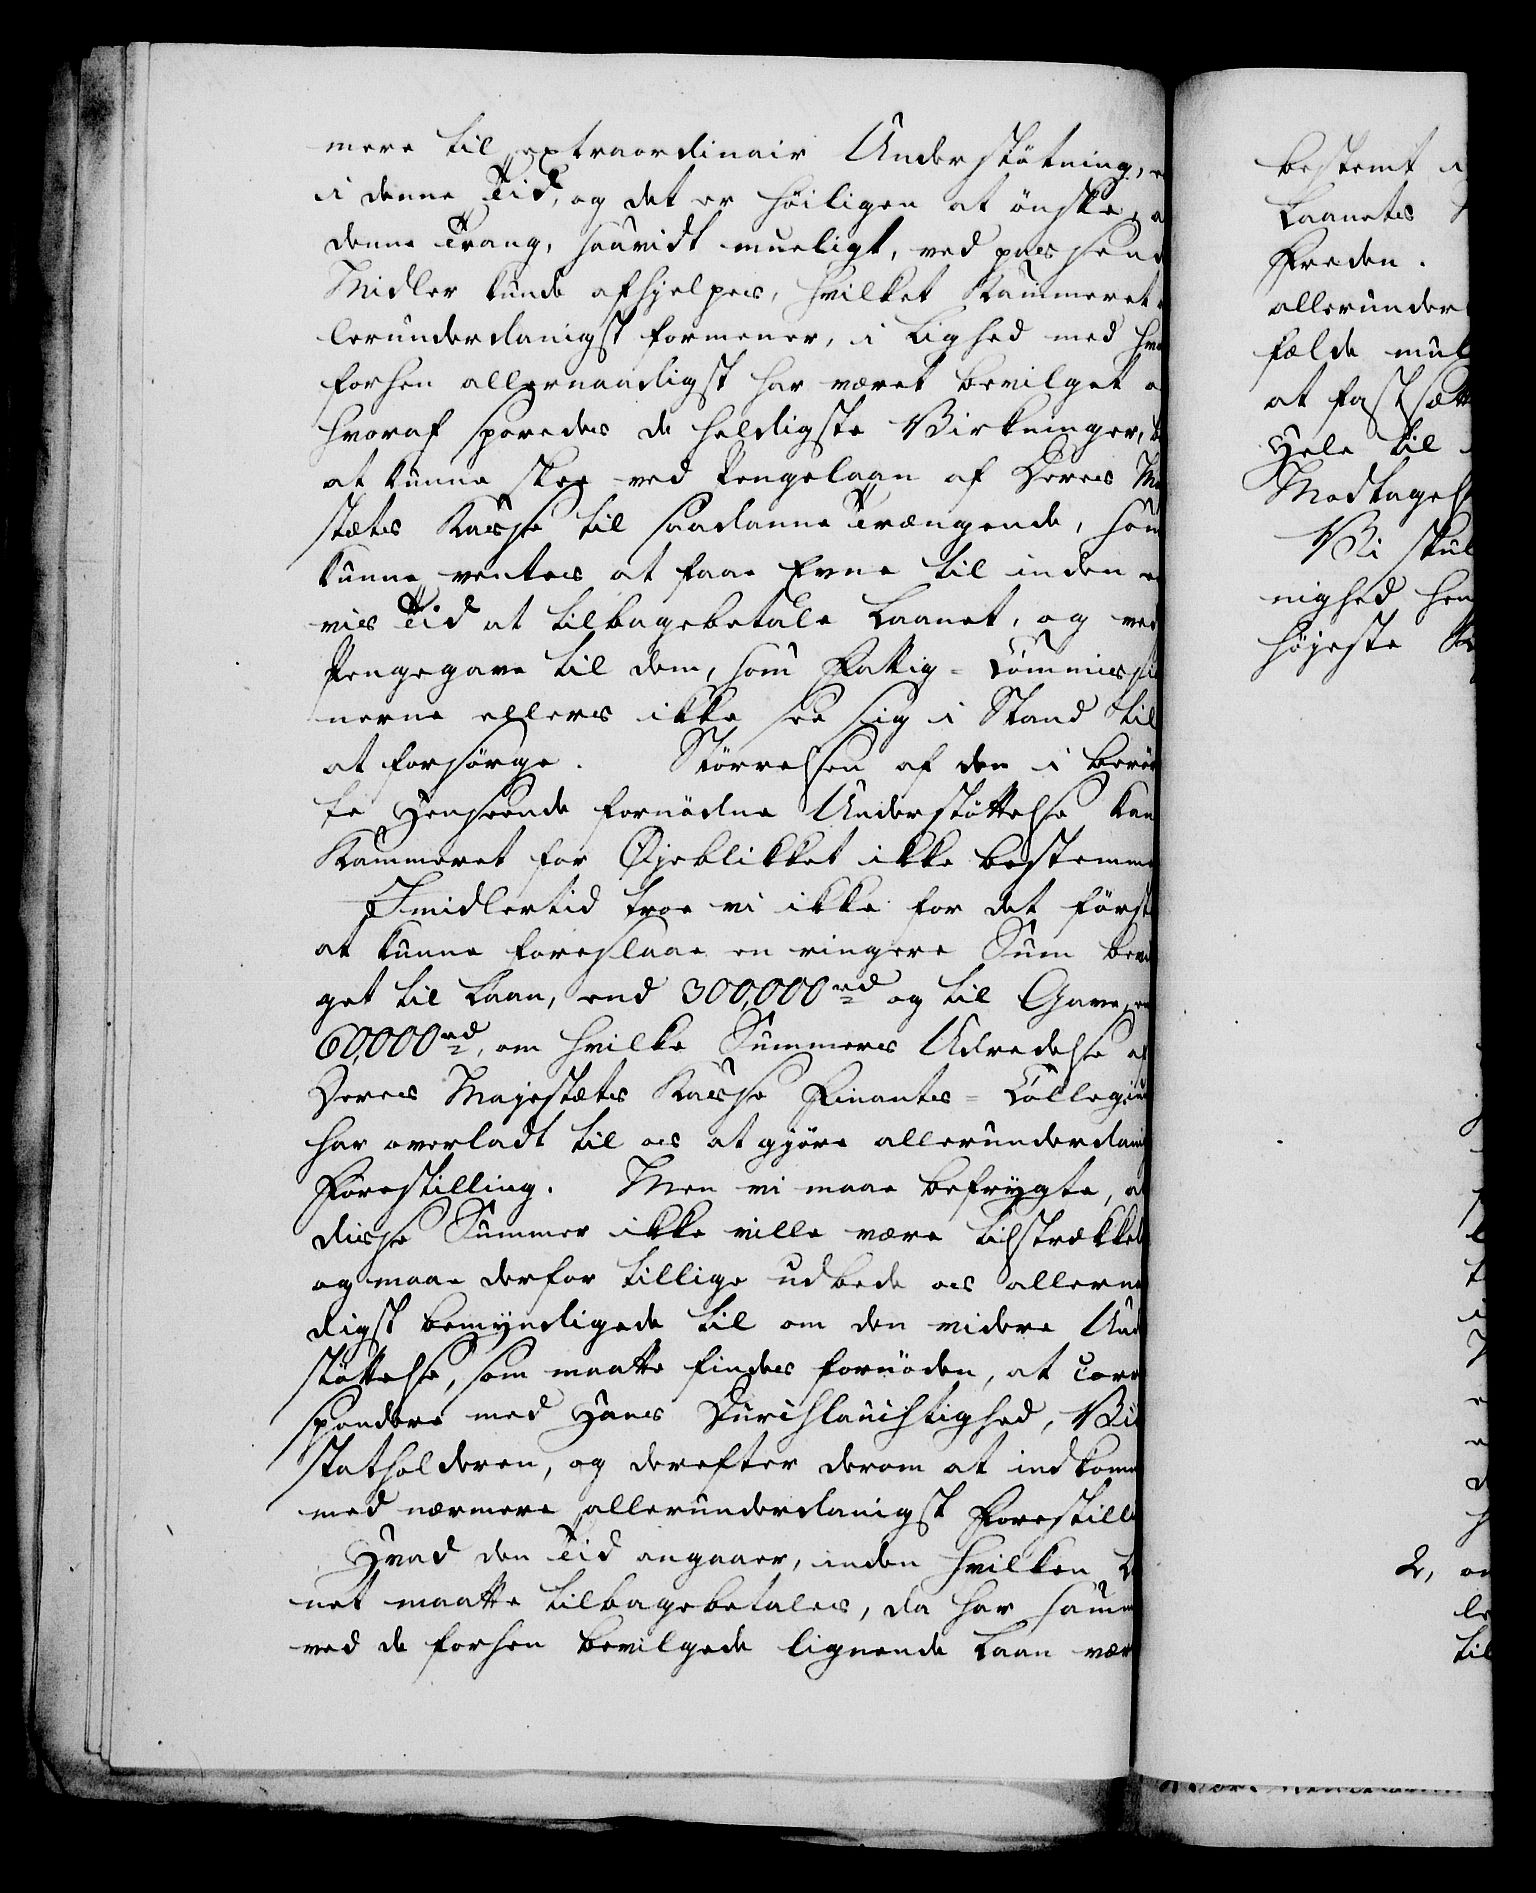 mere til extraordinair Understøtning, e
i denne Tid, og det er høiligen at ønske, a
denne Trang, saavidt mueligt, ved passend
Midler kunde afhjelpes, hvilket Kammeret a
lerunderdanigst formener, i Lighed med hva
forhen allernaadigst har været bevilget o
hvoraf sporedes de heldigste Virkninger, b
at kunne skee ved Pengelaan af Deres Ma
stæts Kasse til saadanne Trængende, som
kunne ventes at faae Evne til inden e
vis Tid at tilbagebetale Laanet, og ved
Pengegave til dem, som Fattig-Commissi
nerne ellers ikke see sig i Stand til
at forsørge. Størrelsen af den i berør
te Henseende fornødne Understøttelse kan
Kammeret for Øjeblikket ikke bestemme
Imidlertid troe vi ikke for det først
at kunne foreslaae en ringere Sum bevil
get til Laan, end 300,000 rd og til Gave, en
60,000 rd, om hvilke Summers Udredelse af
Deres Majestæts Kasse Finants-Collegiu
har overladt til os at gjøre allerunderdani
Forestilling. Men vi maae befrygte, at
disse Summer ikke ville være tilstrækkel
og maae derfor tillige udbede os allerna
digst bemyndigede til om den videre Und
støttelse, som maatte findes fornøden, at corre
spondere med Hans Durchlauchtighed, Vi
statholderen, og derefter derom at indkom
med nærmere allerunderdanigst Forestilli
Hvad den Tid angaaer, inden hvilken L
net maatte tilbagebetales, da har samm
ved de forhen bevilgede lignende Laan vær
bestemt
Laanets
Freden.
allerunder
fælde
at fastsætt
Hele til
Modtagels
Vi skul
nighed hen
højeste
2, om
le
til